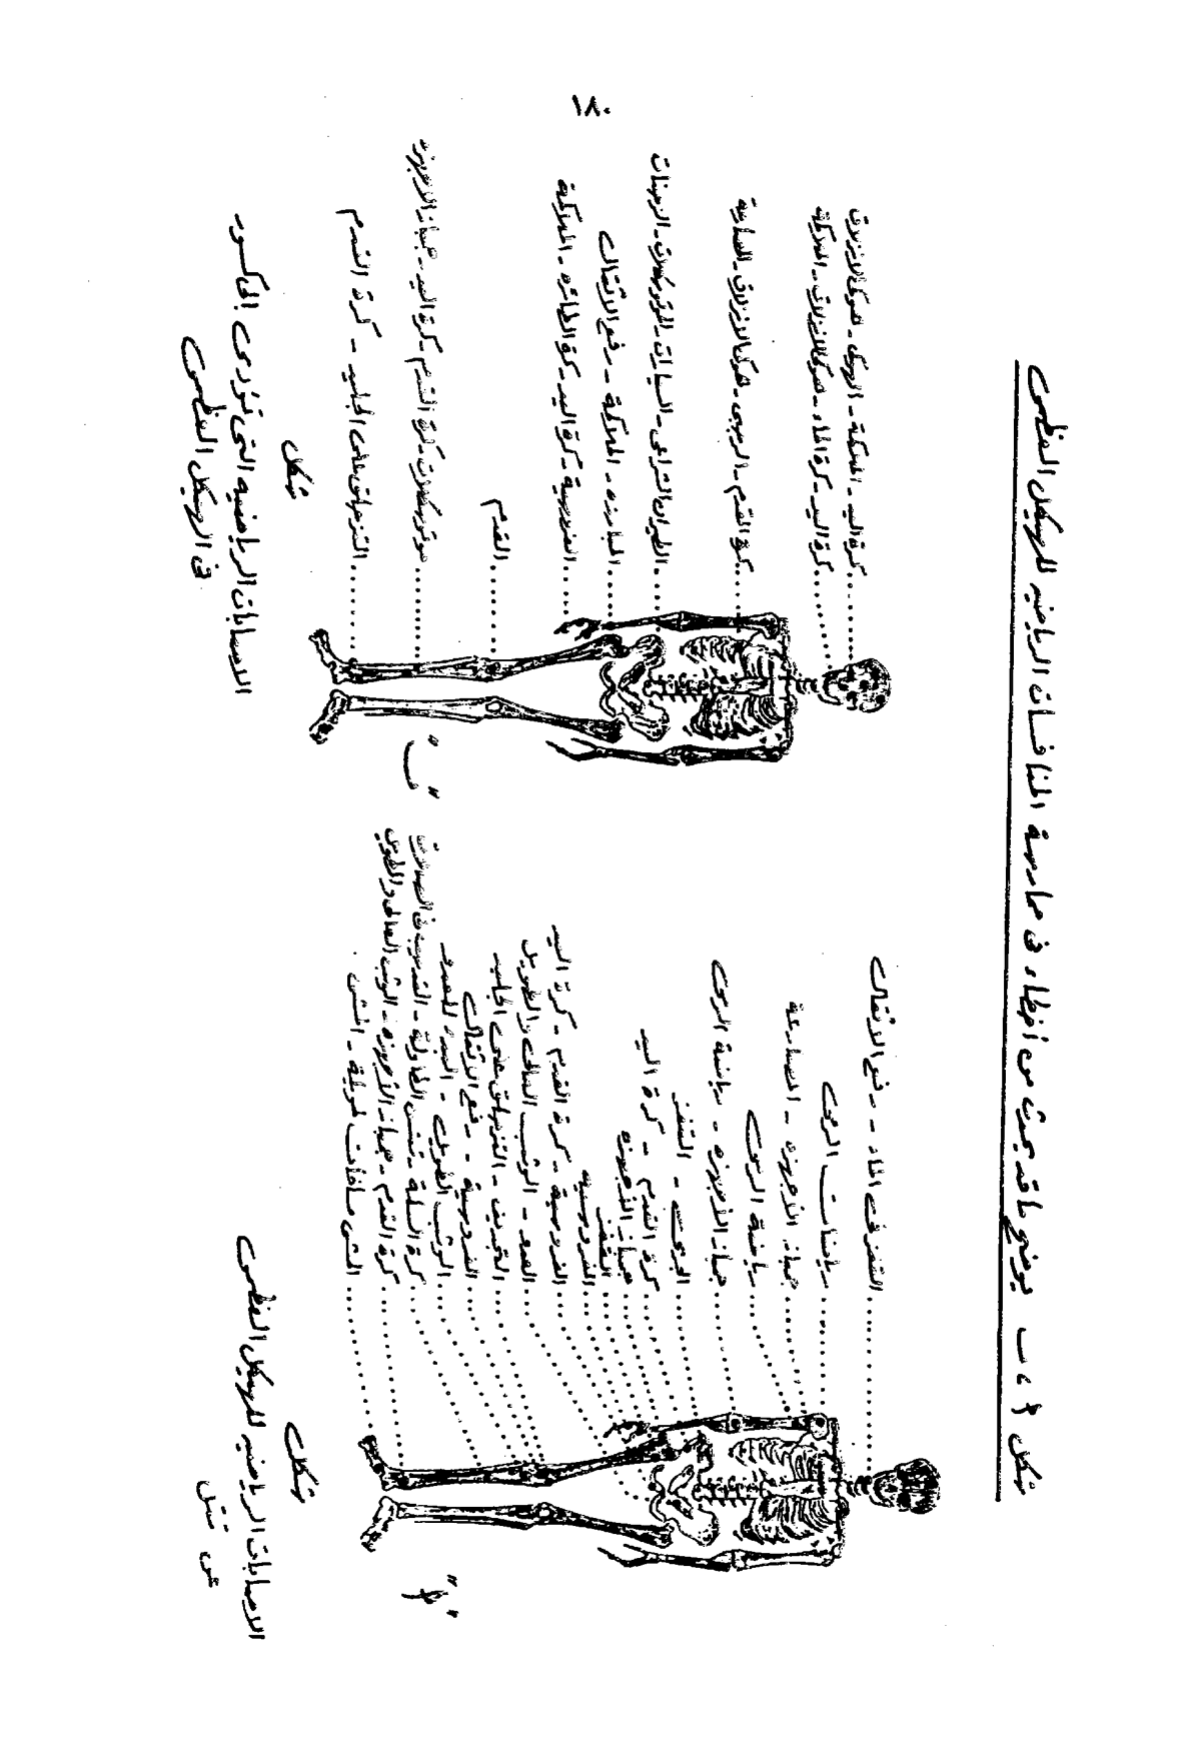 ١٨٠
شكل أ ، ب يوضح ما قد يحدث من أخطاء فى ممارسة المنافسات الرياضيه للهيكل العظمى
الغوص فى الماء - رفع الأثقال
رياضات الرمى
جمباز الأجهزه - المصارعة
رياضة الرمى
جمباز الأجهزه - رياضة الرمى
الرمى - القفز
كرة القدم - كرة اليد
جمباز الأجهزه
القفز
الفروسيه
الفروسية - كرة القدم - كرة اليد
العدو - الوثب العالى والطويل
التجديف - التزحلق على الجليد
الفروسية - رفع الأثقال
الوثب الطويل - البدء للعدو
كرة السلة - تنس الطاولة -
كرة القدم - جمباز الأجهزه - الوثب العالى والطويل
المشى مسافات طويلة - المشى
"أ"
شكل
الاصابات الرياضيه للهيكل العظمى
كرة اليد - الملاكمة - الهوكى - هوكى الانزلاق
كرة اليد - كرة الماء - هوكى الانزلاق - الملاكمة
كرة القدم - الرجبى - هوكى الانزلاق - المصارعة
الطيران الشراعى - السيارات - الموتوسيكلات -
المبارزه - الملاكمة - رفع الأثقال
الفروسية - كرة اليد - كرة الطائره - الملاكمة
القدم
موتوسيكلات - كرة القدم - كرة اليد - جمباز الاجهزه
التزحلق على الجليد - كرة القدم
"ب"
شكل
الاصابات الرياضيه التى تؤدى الى كسور
فى الهيكل العظمى